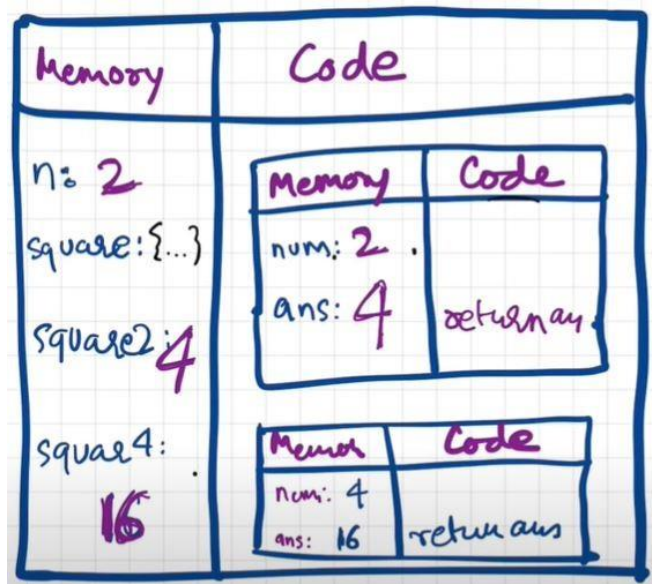 Memory Code
n: 2
square: {...}
square2: 4
squar4:
16
Memory Code
num: 2 .
ans: 4
return an
Memor Code
num: 4
ans: 16 return ans